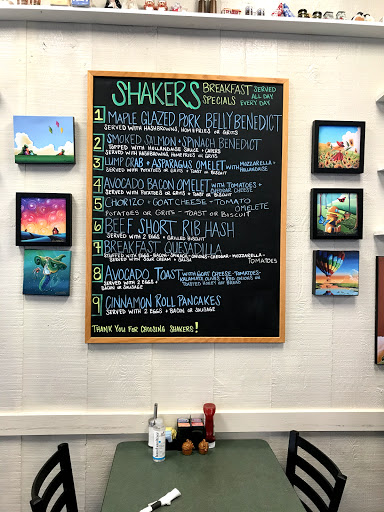 SHAKERS BREAKFAST SERVED
SPECIALS ALL DAY
EVERY DAY
1 MAPLE GLAZED PORK BELLY BENEDICT
SERVED WITH HASHBROWNS, HOMEFRIES OR GRITS
2 SMOKED SALMON + SPINACH BENEDICT
TOPPED WITH HOLLANDAISE SAUCE + CAPERS
SERVED WITH HASHBROWNS, HOMEFRIES OR GRITS
3 LUMP CRAB + ASPARAGUS OMELET WITH MOZZARELLA +
HOLLANDAISE
SERVED WITH POTATOES OR GRITS + TOAST OR BISCUIT
4 AVOCADO BACON OMELET WITH TOMATOES +
CHEDDAR CHEESE
SERVED WITH POTATOES OR GRITS + TOAST OR BISCUIT
5 CHORIZO + GOAT CHEESE - TOMATO
OMELETE
POTATOES OR GRITS - TOAST OR BISCUIT
6 BEEF SHORT RIB HASH
SERVED WITH 2 EGGS + GRILLED BISCUIT
7 BREAKFAST QUESADILLA
STUFFED WITH EGGS - BACON - SPINACH - ONIONS - CHEDDAR - MOZZARELLA -
TOMATOES
SERVED WITH SOUR CREAM + SALSA
8 AVOCADO TOAST WITH GOAT CHEESE - TOMATOES -
KALAMATA OLIVES + RED ONIONS ON
SERVED WITH 2 EGGS +
TOASTED
BACON OR SAUSAGE
9 CINNAMON ROLL PANCAKES
SERVED WITH 2 EGGS + BACON OR SAUSAGE
THANK YOU FOR CHOOSING SHAKERS!